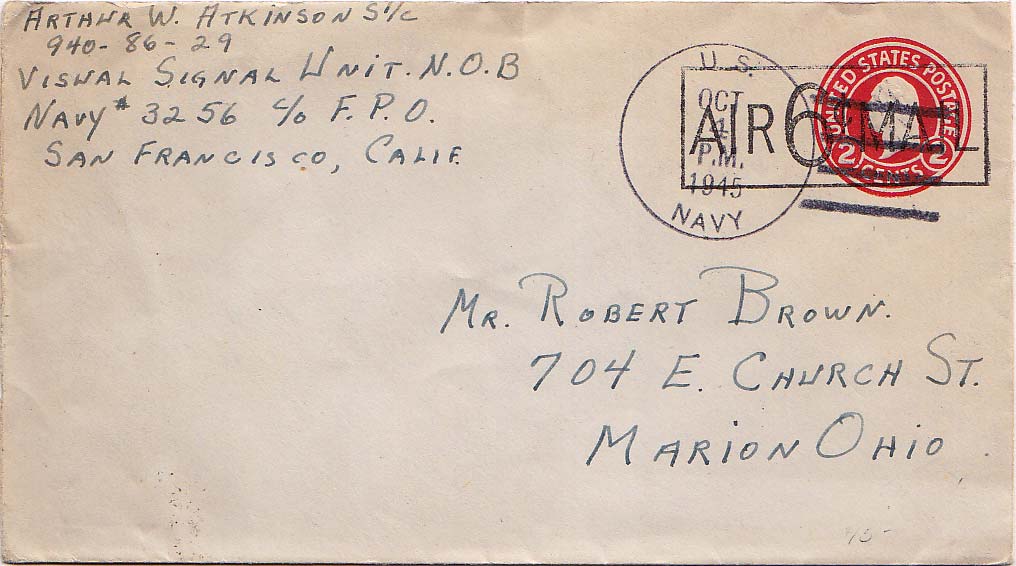 ARTHUR W. ATKINSON S1/c
940-86-29
VISUAL SIGNAL UNIT. N.O.B
NAVY # 3256 c/o F.P.O.
SAN FRANCISCO, CALIF.
U.S.
OCT
P.M.
1945
NAVY
AIR 6¢ MAIL
UNITED STATES POSTAGE
2 CENTS 2
MR. ROBERT BROWN.
704 E. CHURCH ST.
MARION OHIO.